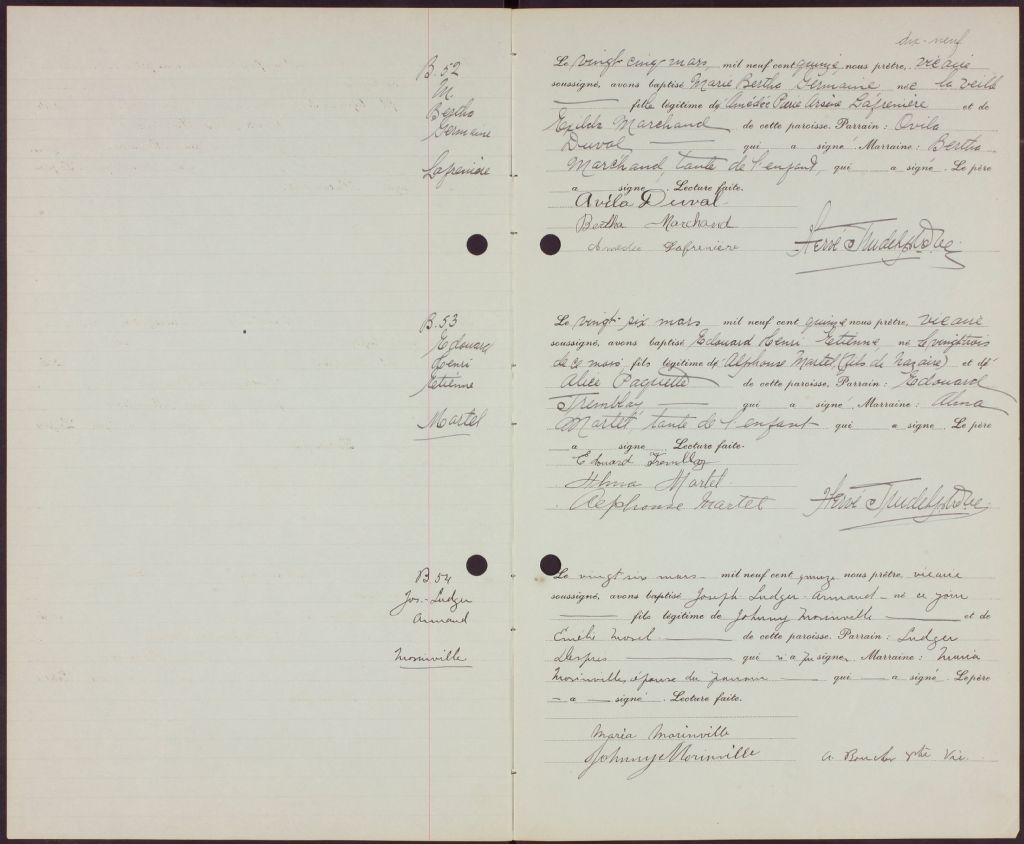 dix-neuf
B. 52
M.
Bertha
Germaine
Lafrenière
Le vingt-cinq mars mil neuf cent quinze nous prêtre, vicaire
soussigné, avons baptisé Marie Bertha Germaine née la veille
fille légitime de Amédée Pierre Arsène Lafrenière et de
Exilda Marchand de cette paroisse. Parrain : Ovila
Duval qui a signé. Marraine : Bertha
Marchand, tante de l'enfant, qui a signé. Le père
a signé. Lecture faite.
Avila Duval
Bertha Marchand
Amédée Lafrenière Hervé Trudel ptre Vic.
B. 53
Edouard
Henri
Etienne
Martel
Le vingt-six mars mil neuf cent quinze nous prêtre, vicaire
soussigné, avons baptisé Edouard Henri Etienne né le vingt trois
de ce mois fils légitime de Alphonse Martel (fils de Nazaire) et de
Alice Paquette de cette paroisse. Parrain : Edouard
Tremblay qui a signé. Marraine : Alma
Martel, tante de l'enfant qui a signé. Le père
a signé. Lecture faite.
Edouard Tremblay
Alma Martel
Alphonse Martel Hervé Trudel ptre Vic.
B 54
Jos.-Ludger
Armand
Morinville
Le vingt six mars mil neuf cent quinze nous prêtre, vicaire
soussigné, avons baptisé Joseph Ludger Armand né ce jour
fils légitime de Johnny Morinville et de
Emélie Morel de cette paroisse. Parrain : Ludger
Despres qui n'a pu signer. Marraine : Maria
Morinville, épouse du parrain qui a signé. Le père
a signé. Lecture faite.
Maria Morinville
Johnny Morinville A Boucher ptre Vic.